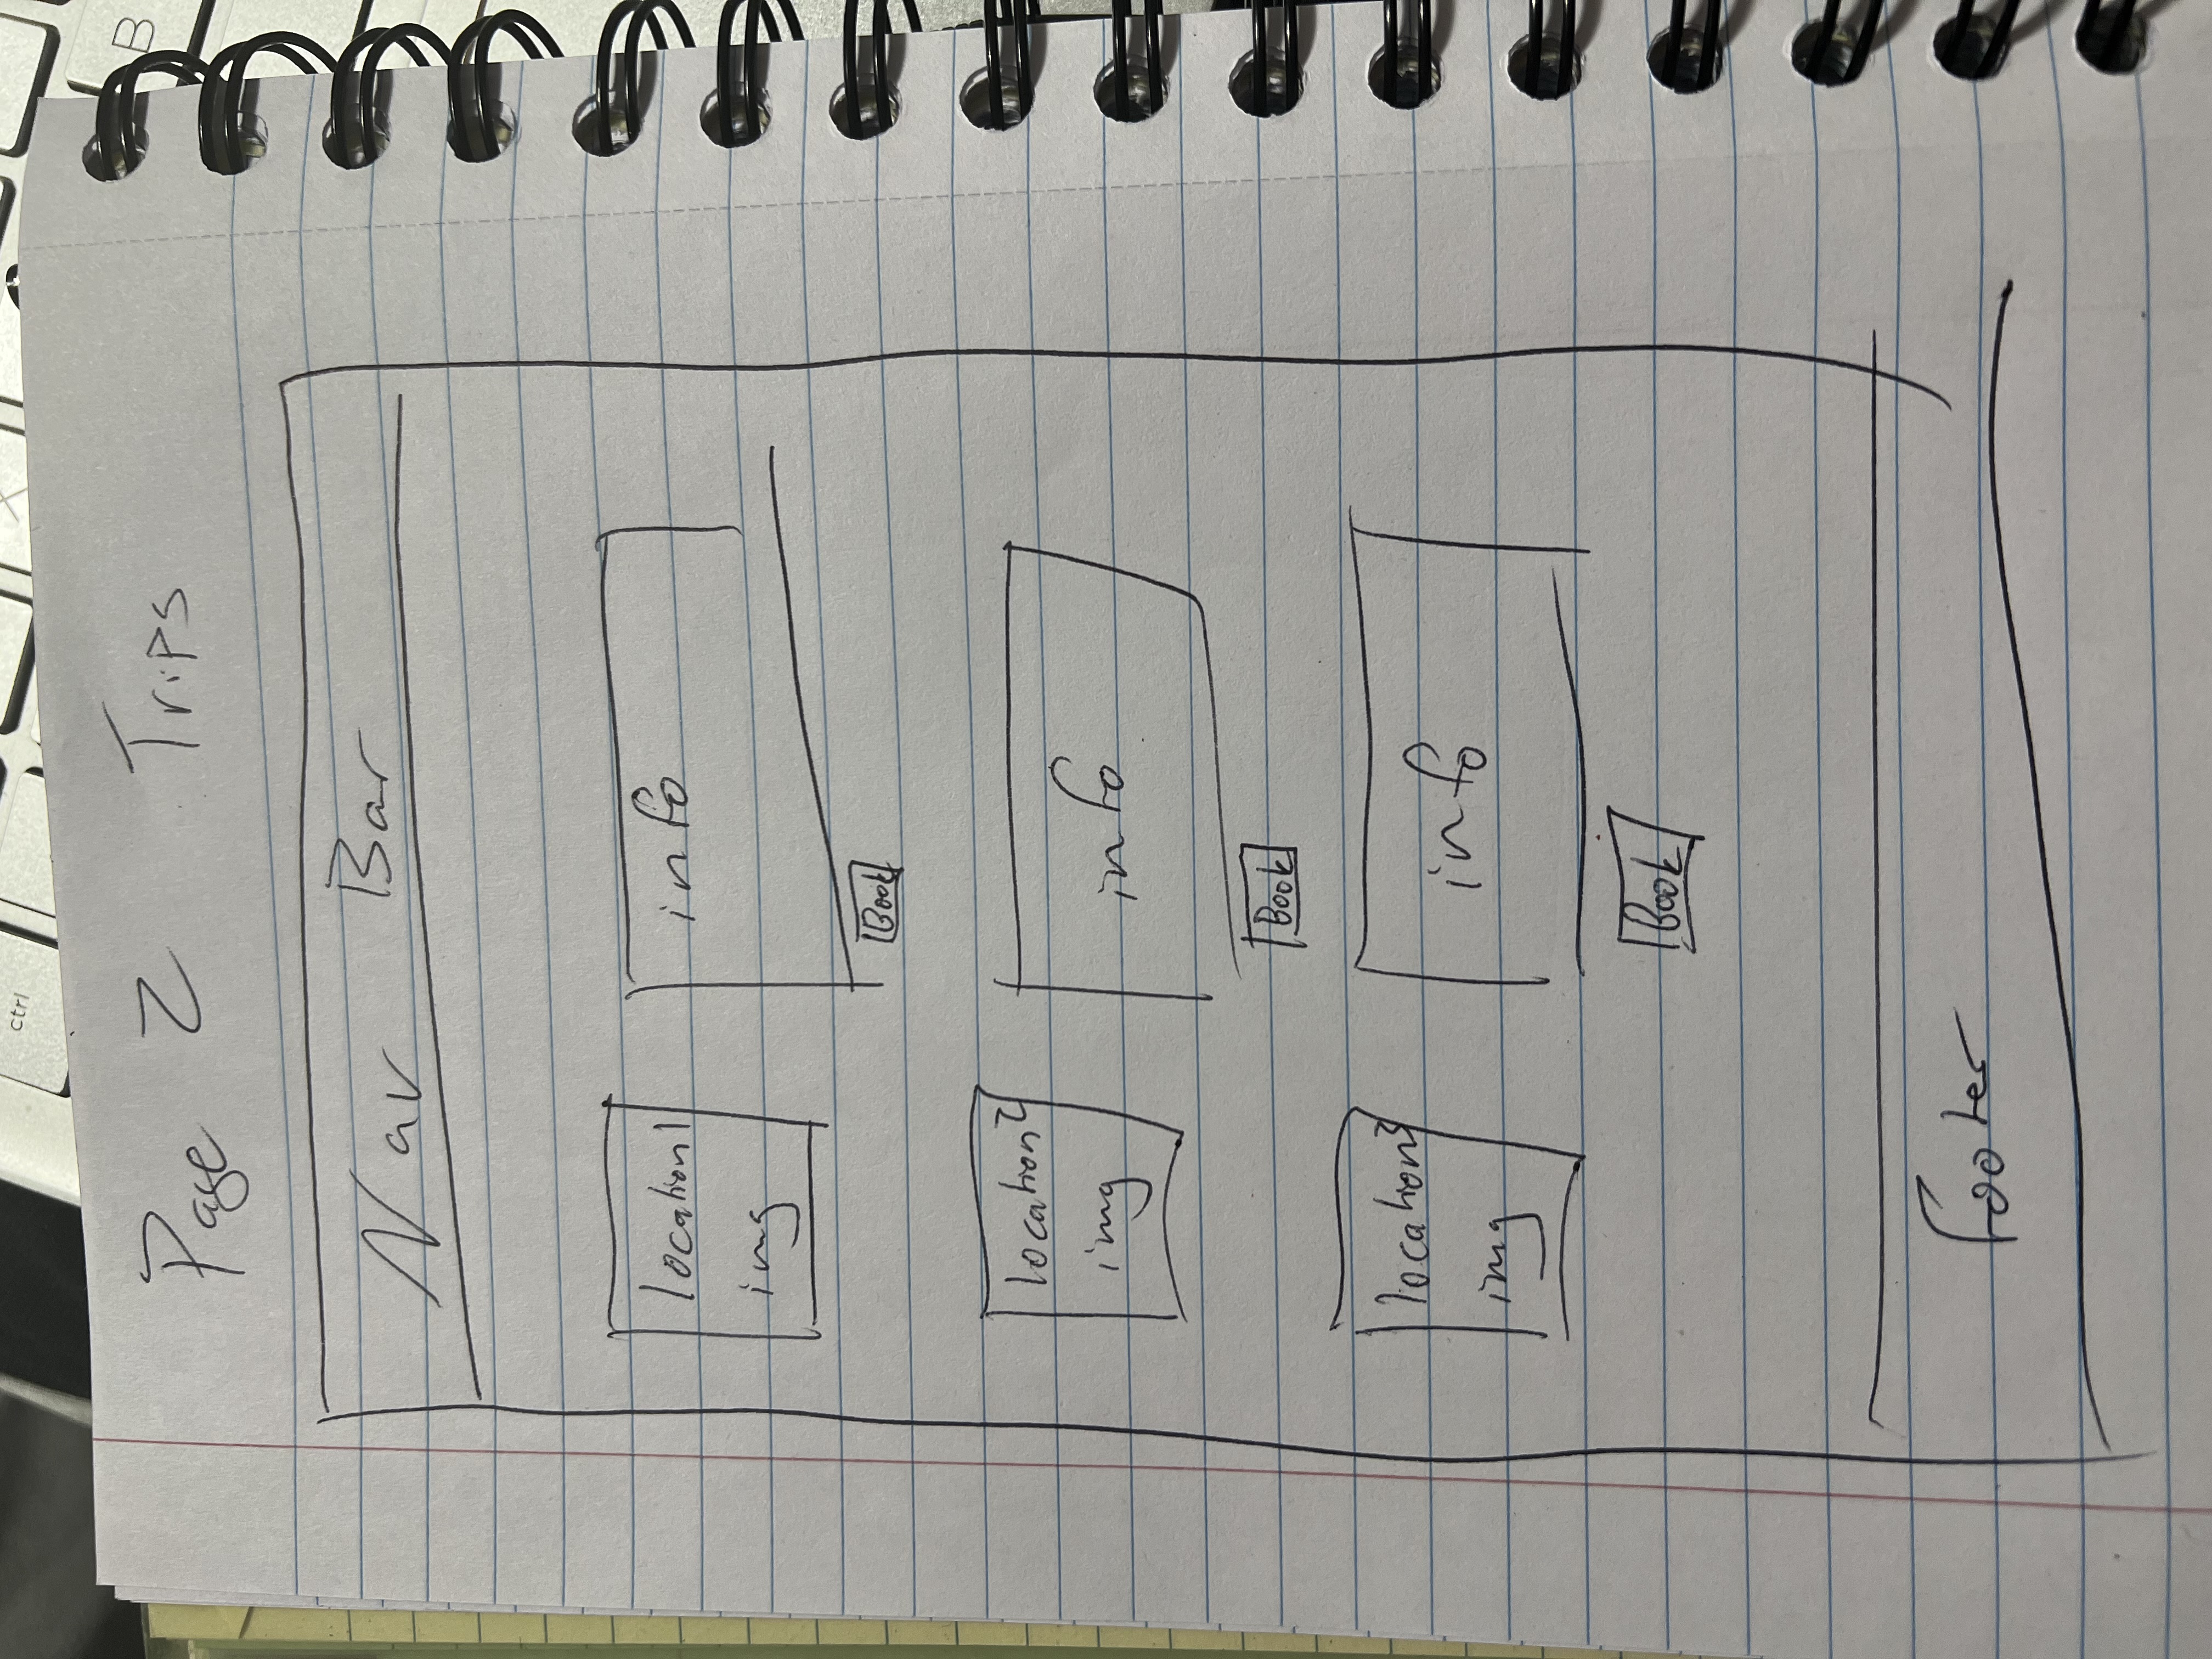 ctrl
B
Page 2 Trips
Nav Bar
location1
img
info
Book
location2
img
info
Book
location3
img
info
Book
footer